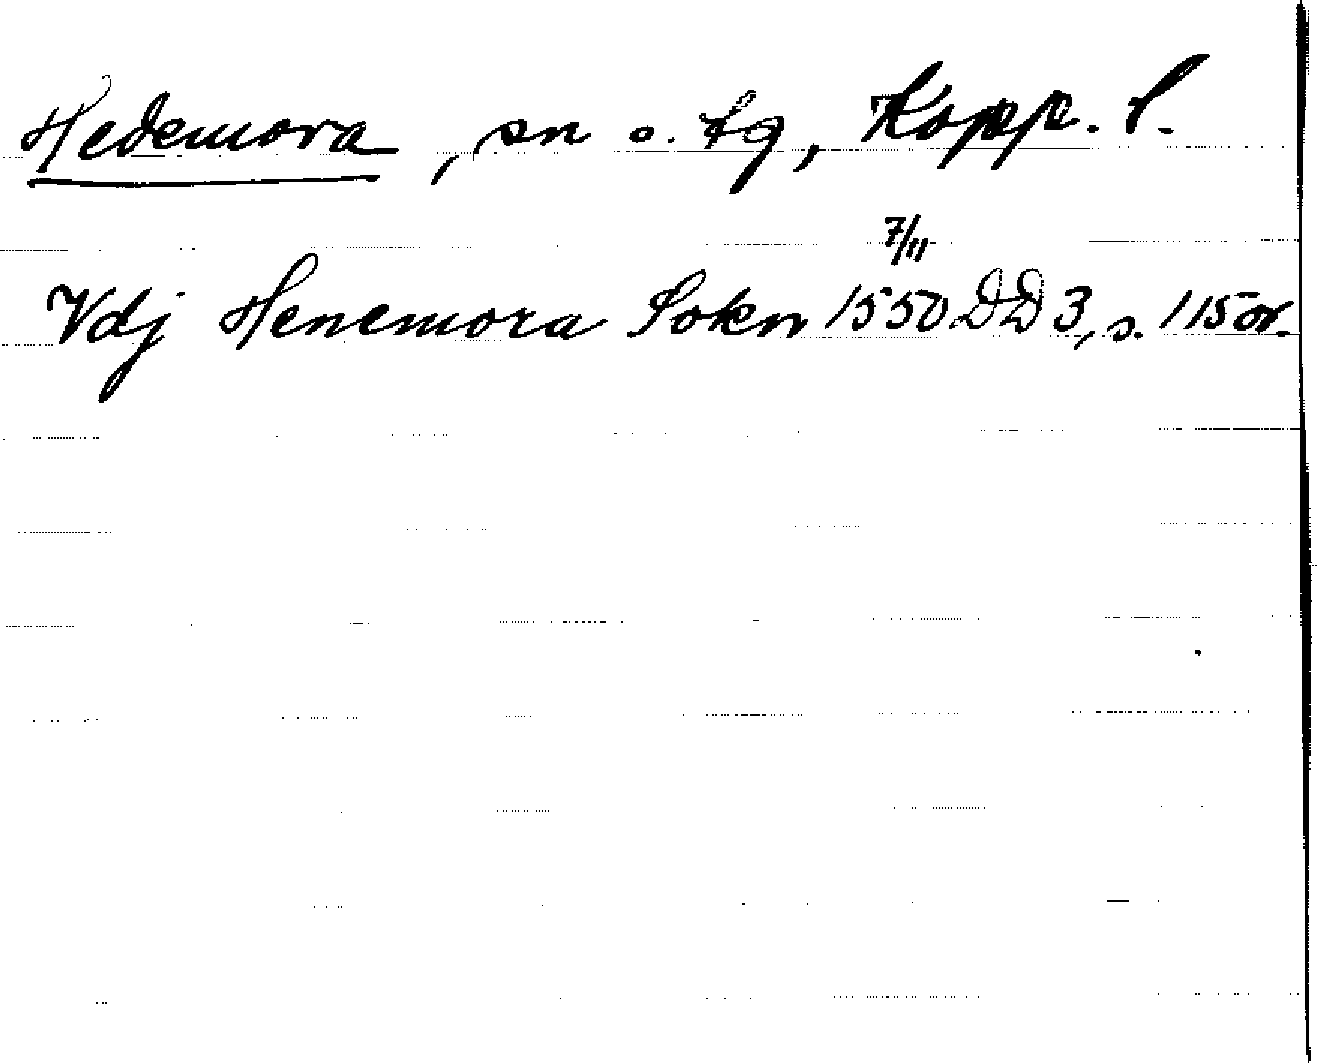 Hedemora, sn o. tg, Kopp. l.
Vdj Henemora Sokn 7/11 1550 DD 3, s. 115 or.